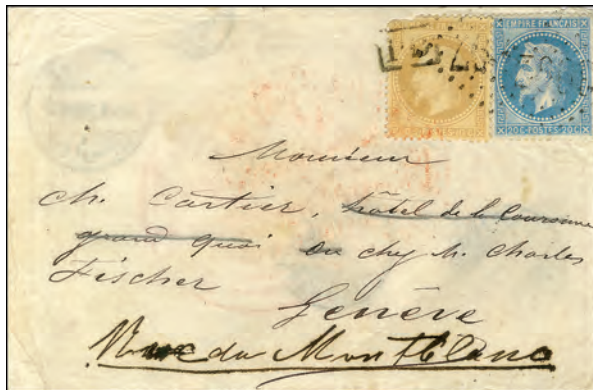 EMPIRE FRANÇAIS
20 C POSTES 20 C
Monsieur
Ch. Cartier, hôtel de la Couronne
grand quai ou chez M. Charles
Fischer
Genève
Rue du Montblanc